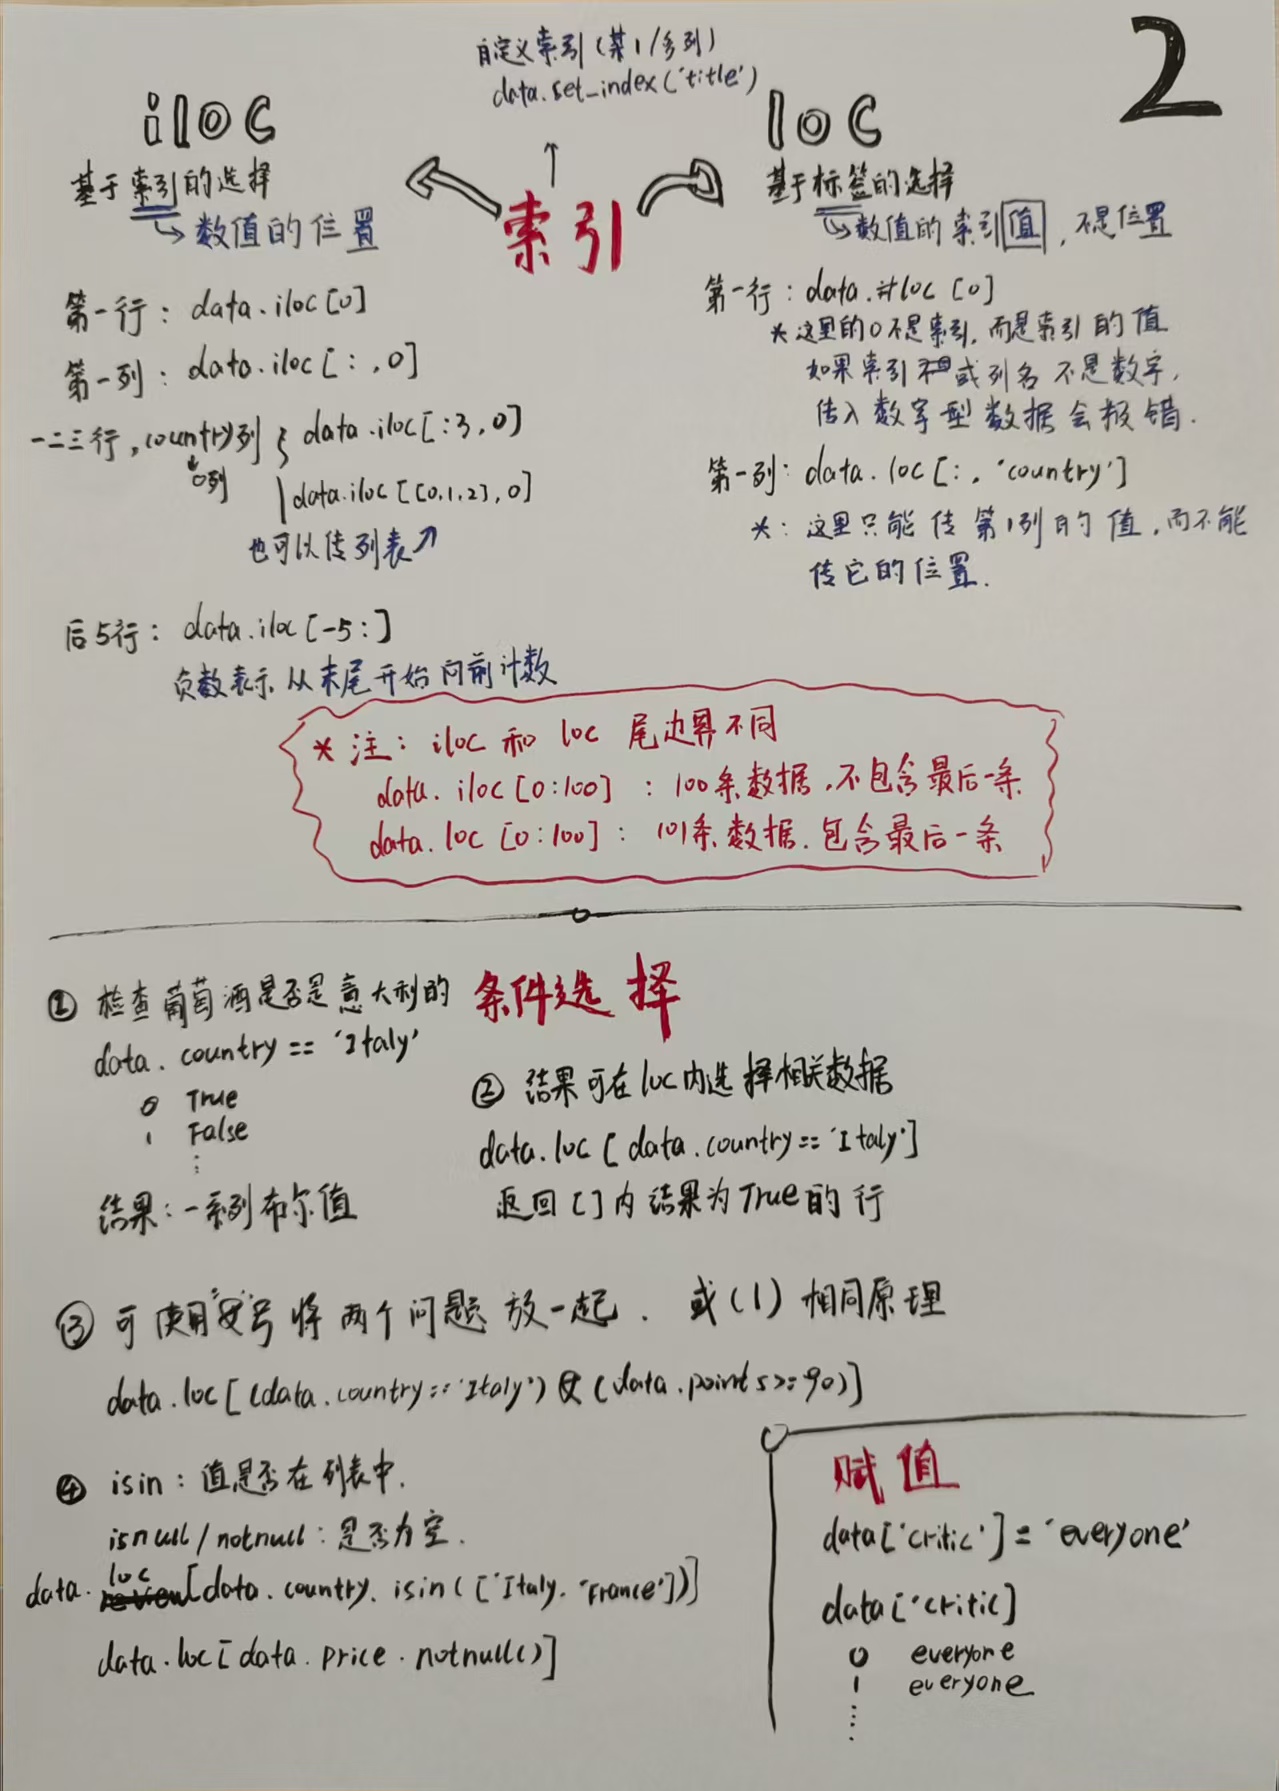 2
自定义索引(某1/多列)
data.set_index('title')
索引
iloc
基于索引的选择
↳数值的位置
第一行: data.iloc[0]
第一列: data.iloc[:,0]
一二三行,country列 { data.iloc[:3,0]
0列
data.iloc[[0,1,2],0]
也可以传列表↗
后5行: data.iloc[-5:]
负数表示从末尾开始向前计数
loc
基于标签的选择
↳数值的索引值,不是位置
第一行: data.loc[0]
*这里的0不是索引,而是索引的值
如果索引或列名不是数字,
传入数字型数据会报错.
第一列: data.loc[:,'country']
*: 这里只能传第1列的值,而不能
传它的位置.
*注: iloc 和 loc 尾边界不同
data.iloc[0:100] : 100条数据,不包含最后一条
data.loc[0:100] : 101条数据.包含最后一条
条件选择
① 检查葡萄酒是否是意大利的
data.country == 'Italy'
0 True
1 False
⋮
结果:一系列布尔值
② 结果可在loc内选择相关数据
data.loc[data.country == 'Italy']
返回[]内结果为True的行
③ 可使用"&"号将两个问题放一起. 或(|)相同原理
data.loc[(data.country == 'Italy') & (data.points >= 90)]
④ isin: 值是否在列表中.
isnull/notnull: 是否为空.
data.loc[data.country.isin(['Italy.'France'])]
data.loc[data.price.notnull()]
赋值
data['critic'] = 'everyone'
data['critic]
0 everyone
1 everyone
⋮